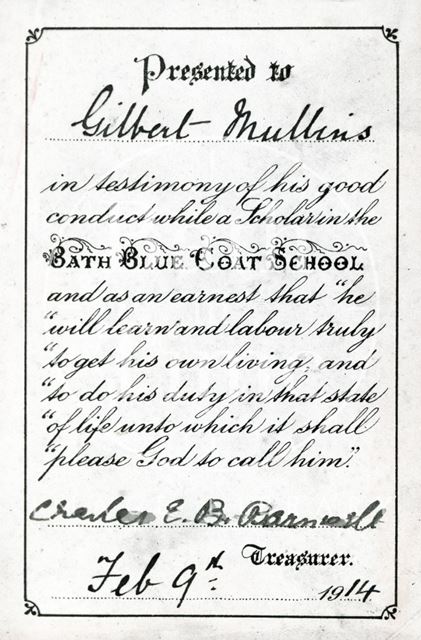 Presented to
Gilbert Mullins
in testimony of his good
conduct while a Scholar in the
BATH BLUE COAT SCHOOL
and as an earnest that "he
"will learn and labour truly
"to get his own living, and
"to do his duty in that state
"of life unto which it shall
"please God to call him".
Charles E. B.
Treasurer.
Feb 9th 1914